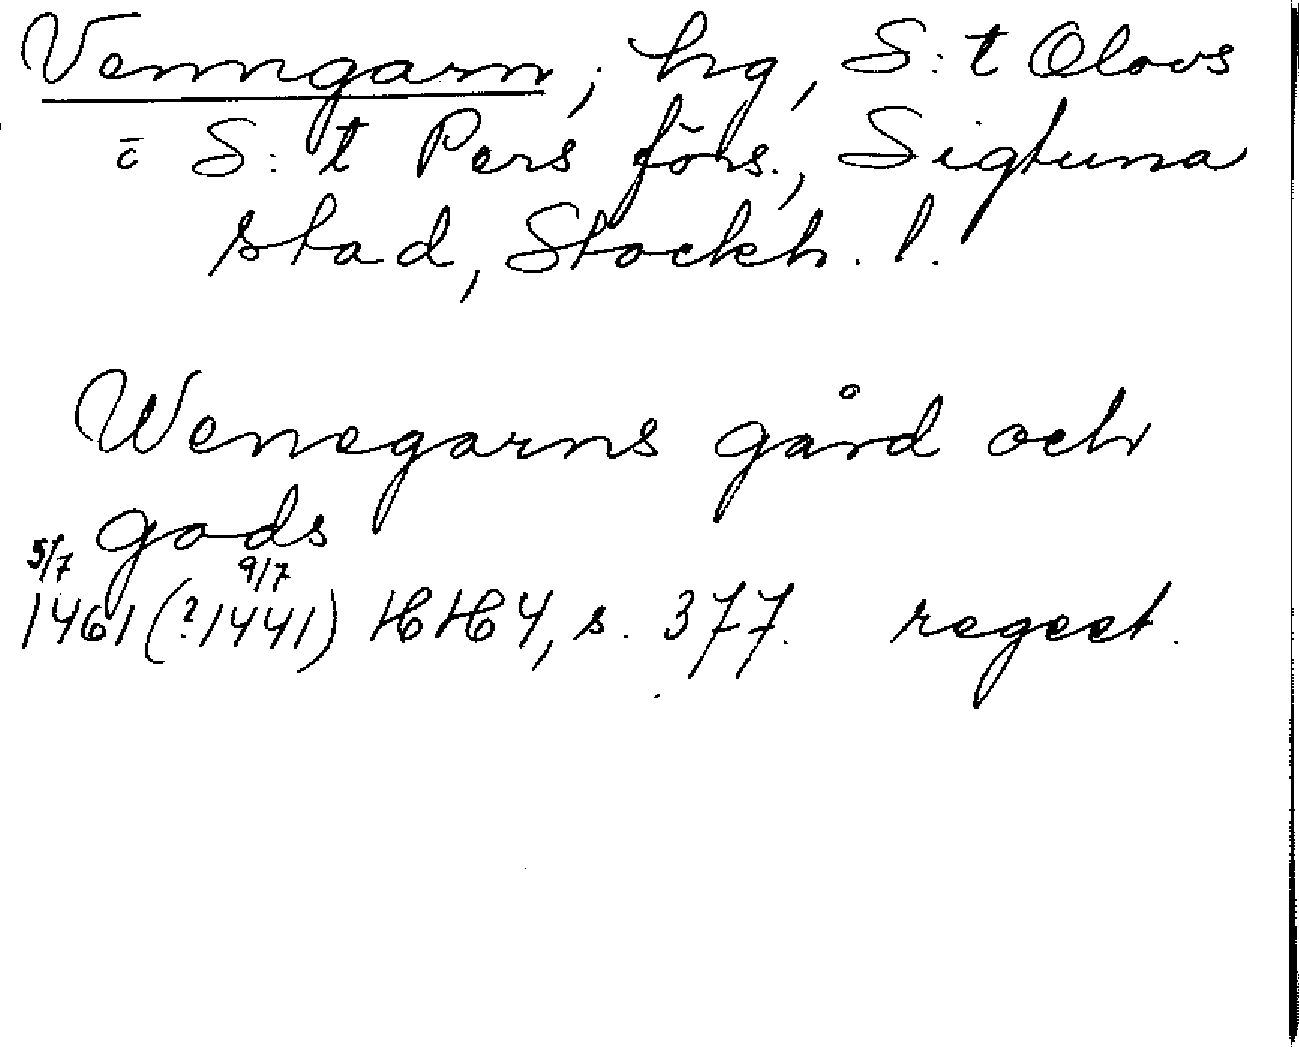 Venngarn, hg, S:t Olovs
o S:t Pers förs., Sigtuna
stad, Stockh. l.
Wenegarns gård och
gods
5/7 9/7
1461 (?1441) HH 4, s. 377. regest.